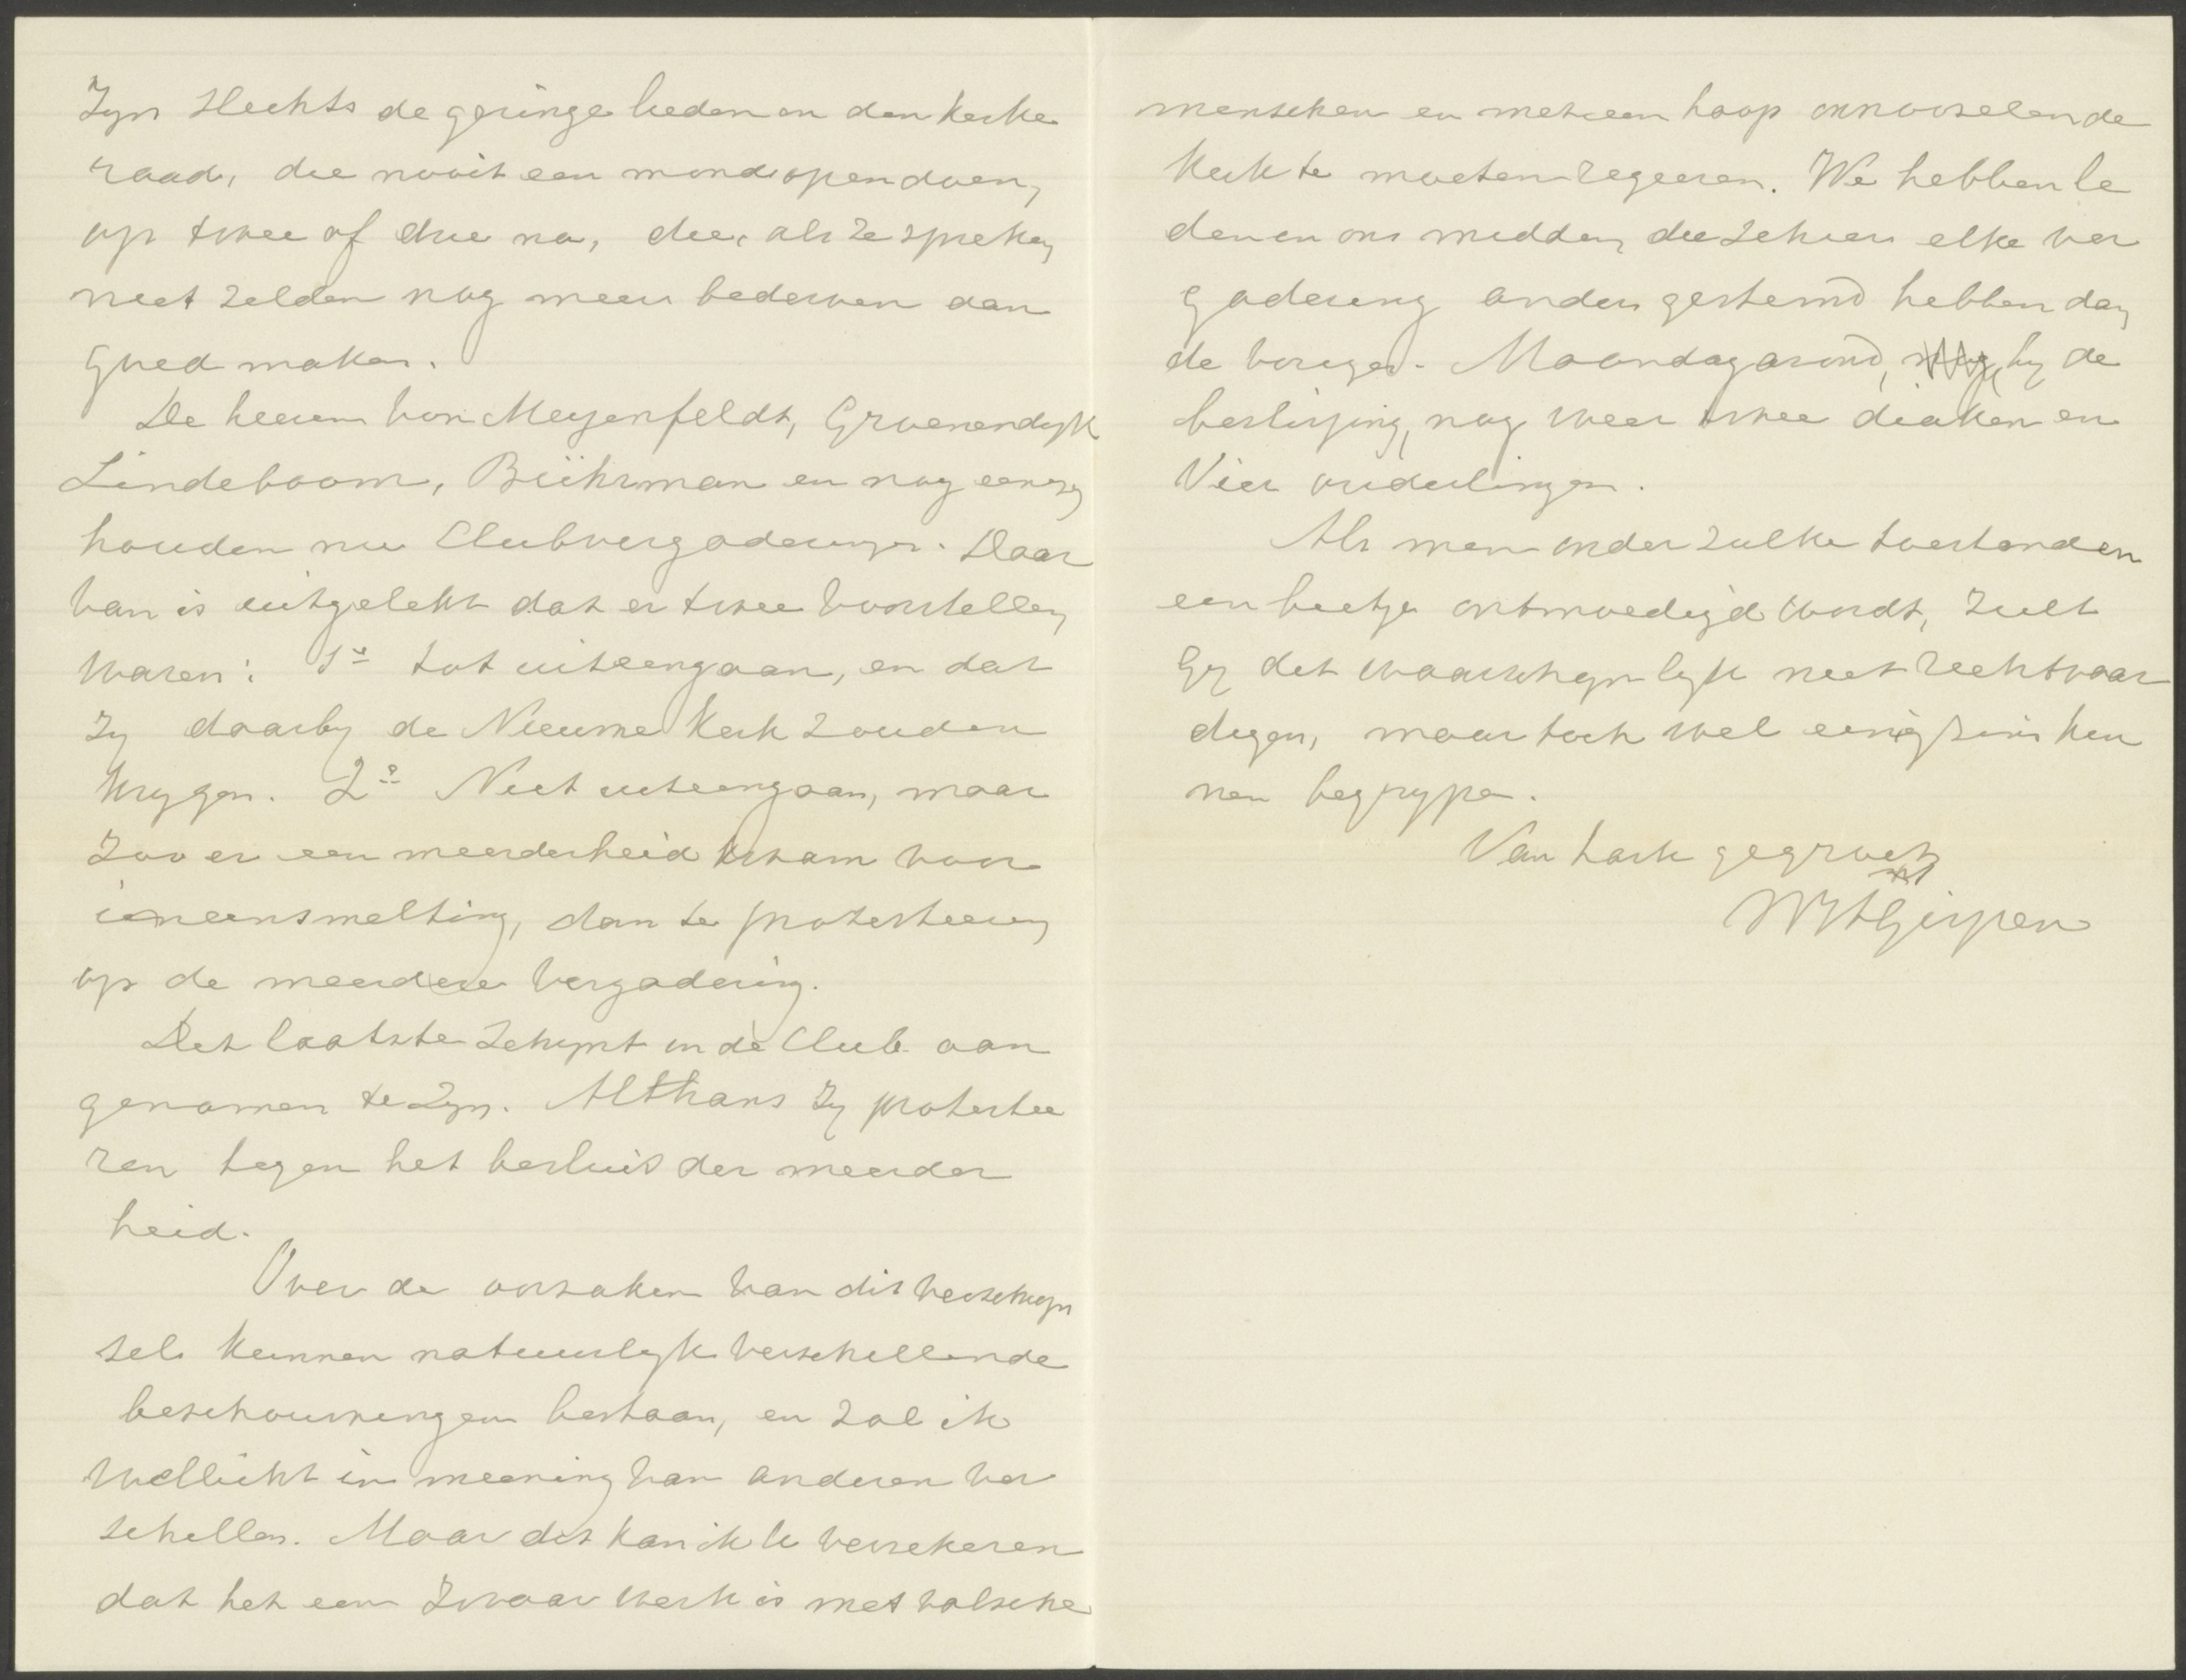 Zyn slechts de geringe leden in den kerke
raad, die nooit een mond opendoen,
op twee of drie na, die, als ze spreken,
niet zelden nog meer bederven dan
goed maken.
De heeren Von Meyenfeldt, Groenendyk
Lindeboom, Bührman en nog eenige
houden nu Clubvergaderingen. Daar
van is uitgelekt dat er twee voorstellen
waren: 1º tot uiteengaan, en dat
zy daarby de Nieuwe Kerk zouden
krygen. 2º Niet uiteengaan, maar
zoo er een meerderheid kwam voor
ineensmelting, dan te protesteeren
op de meerdere vergadering.
Dit laatste schynt in de Club aan
genomen te zyn. Althans zy protestee
ren tegen het besluit der meerder
heid.
Over de oorzaken van dit verschyn
sel kunnen natuurlyk verschillende
beschouwingen bestaan, en zal ik
wellicht in meening van anderen ver
schillen. Maar dit kan ik U verzekeren
dat het een zwaar werk is met valsche
menschen en met een hoop onnoozelen de
Kerk te moeten regeeren. We hebben le
den in ons midden, die schier elke ver
gadering anders gestemd hebben dan
de vorige. Maandagavond, by de
beslissing, nog weer twee diaken en
Vier ouderlingen.
Als men onder zulke toestanden
een beetje ontmoedigd wordt, zult
Gy dit waarschynlyk niet rechtvaar
digen, maar toch wel eenigszins kun
nen begrypen.
Van harte gegroet
WHGispen